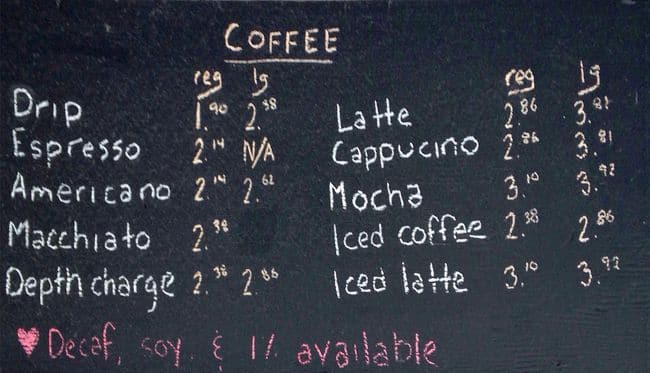 COFFEE
reg lg reg lg
Drip 1.90 2.38 Latte 2.86 3.81
Espresso 2.14 N/A Cappucino 2.86 3.81
Americano 2.14 2.62 Mocha 3.10 3.92
Macchiato 2.38 Iced coffee 2.38 2.86
Depth charge 2.38 2.86 Iced latte 3.10 3.92
Decaf, soy & 1% available